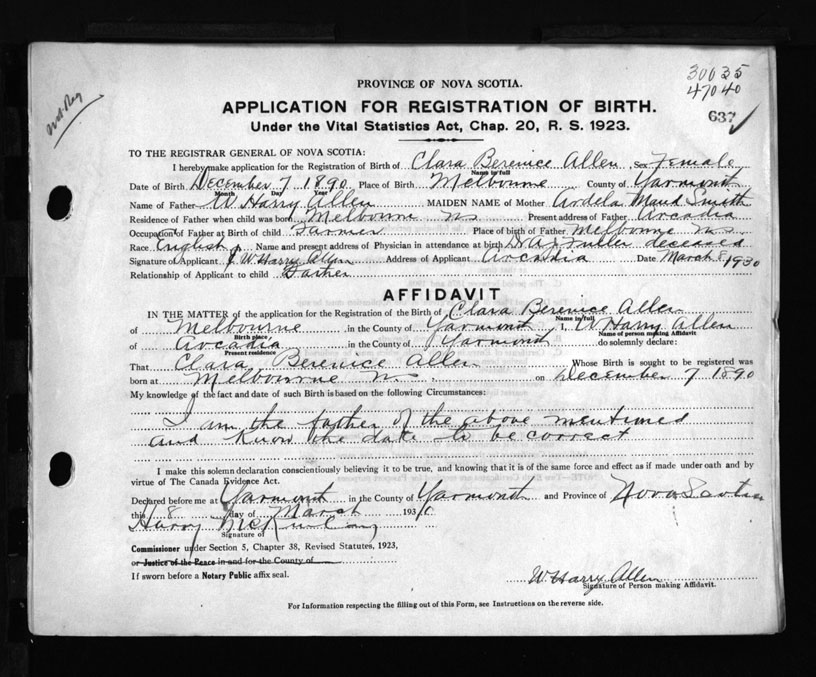 Not Reg
30035
47040
637
PROVINCE OF NOVA SCOTIA.
APPLICATION FOR REGISTRATION OF BIRTH.
Under the Vital Statistics Act, Chap. 20, R. S. 1923.
TO THE REGISTRAR GENERAL OF NOVA SCOTIA:
I hereby make application for the Registration of Birth of Clara Berenice Allen Sex Female
Name in full
Date of Birth December 7 1890 Place of Birth Melbourne County of Yarmouth
Month Day Year
Name of Father W Harry Allen MAIDEN NAME of Mother Ardela Maud Smith
Residence of Father when child was born Melbourne N S Present address of Father Arcadia
Occupation of Father at birth of child Farmer Place of birth of Father Melbourne N S
Race English Name and present address of Physician in attendance at birth Dr A J Fuller deceased
Signature of Applicant W Harry Allen Address of Applicant Arcadia Date March 8, 1930
Relationship of Applicant to child Father
AFFIDAVIT
IN THE MATTER of the application for the Registration of the Birth of Clara Berenice Allen
Name in full
of Melbourne in the County of Yarmouth I, W Harry Allen
Birth place Name of person making Affidavit
of Arcadia in the County of Yarmouth do solemnly declare:
Present residence
That Clara Berenice Allen Whose Birth is sought to be registered was
born at Melbourne N S. on December 7 1890
My knowledge of the fact and date of such Birth is based on the following Circumstances:
I am the father of the above mentioned
and know the date to be correct
I make this solemn declaration conscientiously believing it to be true, and knowing that it is of the same force and effect as if made under oath and by
virtue of The Canada Evidence Act.
Declared before me at Yarmouth in the County of Yarmouth and Province of Nova Scotia
this 8 day of March 1930
Harry
Signature of
Commissioner under Section 5, Chapter 38, Revised Statutes, 1923,
or Justice of the Peace in and for the County of
If sworn before a Notary Public affix seal.
W. Harry Allen
Signature of Person making Affidavit.
For Information respecting the filling out of this Form, see Instructions on the reverse side.